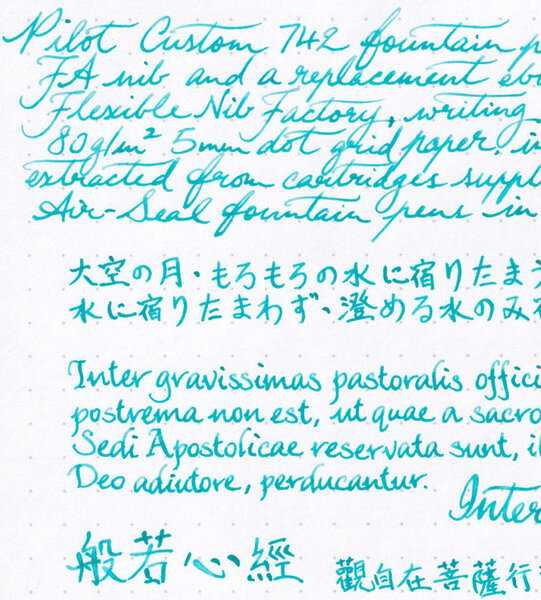 Pilot Custom 742 fountain p
FA nib and a replacement eb
Flexible Nib Factory, writing
80g/m² 5mm dot grid paper. in
extracted from cartridges suppl
Air-Seal fountain pens in
大空の月・もろもろの水に宿りたまう
水に宿りたまわず・澄める水のみ
Inter gravissimas pastoralis offici
postrema non est, ut quae a sacro
Sedi Apostolicae reservata sunt, il
Deo adiutore, perducantur.
Inter
般若心經
觀自在菩薩行